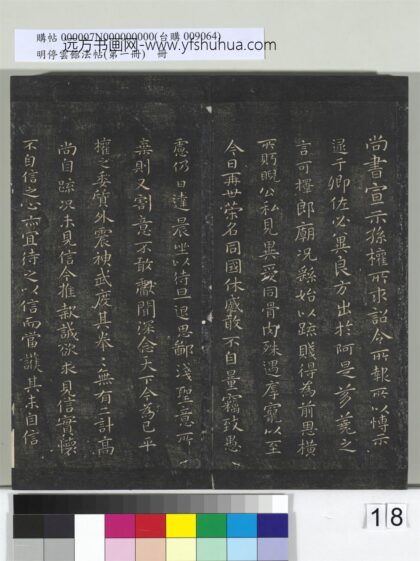 購帖 000007N000000000(台購 009064)
明停雲館法帖(第一冊)　冊
远方书画网-www.yfshuhua.com
尚書宣示孫權所求詔令所報所以博示
逮于卿佐必冀良方出於阿是芻蕘之
言可擇郎廟況繇始以疏賤得為前恩橫
所盼睨公私見異愛同骨肉殊遇厚寵以至
今日再世榮名同國休慼敢不自量竊致愚
慮仍日達晨坐以待旦退思鄙淺聖意所
棄則又割意不敢獻聞深念天下今為已平
權之委質外震神武度其拳〻無有二計高
尚自疏況未見信今推款誠欲求見信實懷
不自信之心亦宜待之以信而當護其未自信
18